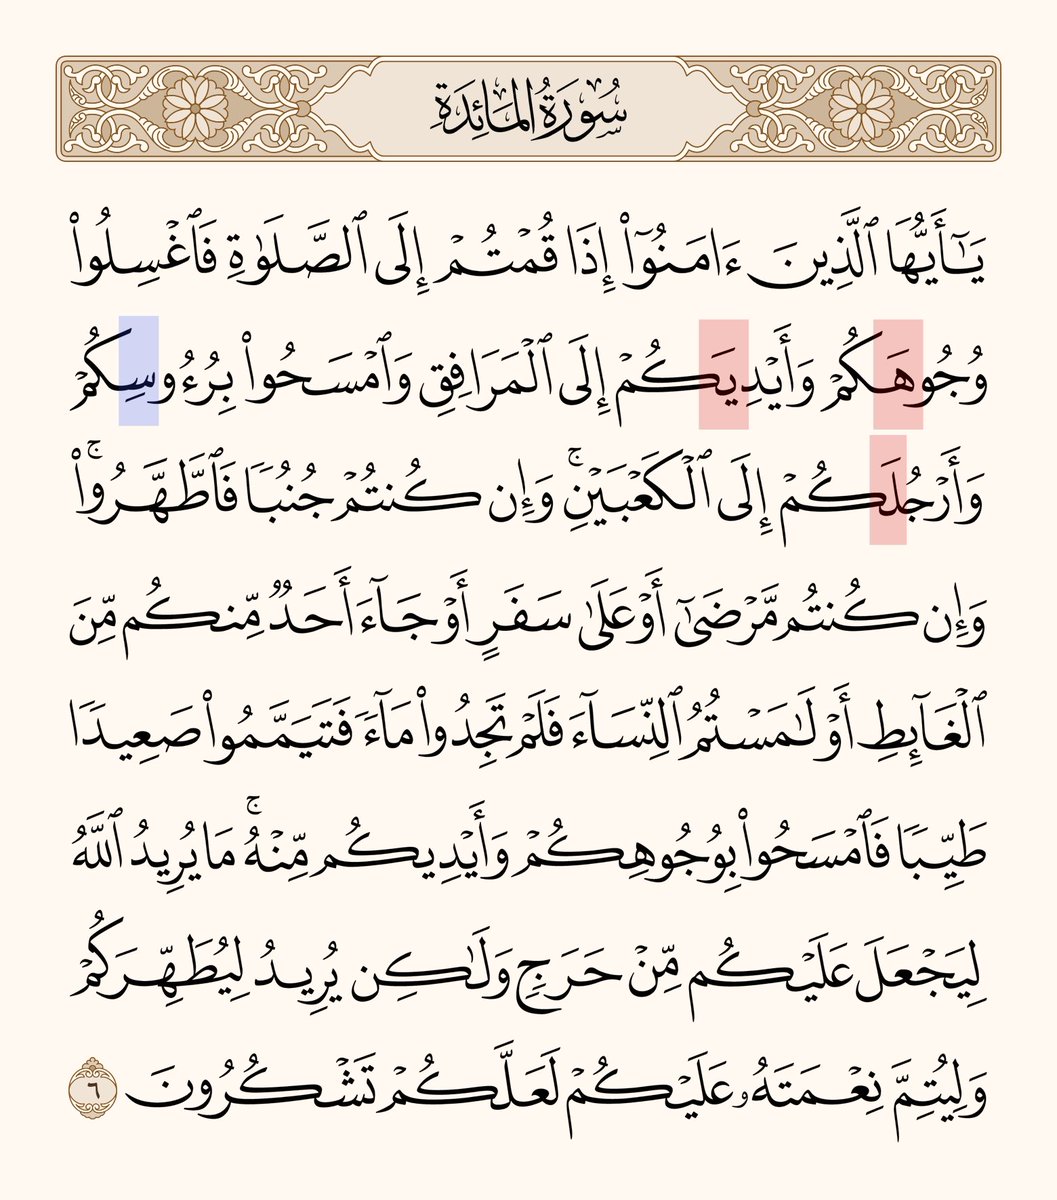 سُورَةُ المَائِدَةِ
يَٰٓأَيُّهَا ٱلَّذِينَ ءَامَنُوٓا۟ إِذَا قُمْتُمْ إِلَى ٱلصَّلَوٰةِ فَٱغْسِلُوا۟
وُجُوهَكُمْ وَأَيْدِيَكُمْ إِلَى ٱلْمَرَافِقِ وَٱمْسَحُوا۟ بِرُءُوسِكُمْ
وَأَرْجُلَكُمْ إِلَى ٱلْكَعْبَيْنِ ۚ وَإِن كُنتُمْ جُنُبًا فَٱطَّهَّرُوا۟ ۚ
وَإِن كُنتُم مَّرْضَىٰٓ أَوْ عَلَىٰ سَفَرٍ أَوْ جَآءَ أَحَدٌ مِّنكُم مِّنَ
ٱلْغَآئِطِ أَوْ لَٰمَسْتُمُ ٱلنِّسَآءَ فَلَمْ تَجِدُوا۟ مَآءً فَتَيَمَّمُوا۟ صَعِيدًا
طَيِّبًا فَٱمْسَحُوا۟ بِوُجُوهِكُمْ وَأَيْدِيكُم مِّنْهُ ۚ مَا يُرِيدُ ٱللَّهُ
لِيَجْعَلَ عَلَيْكُم مِّنْ حَرَجٍ وَلَٰكِن يُرِيدُ لِيُطَهِّرَكُمْ
وَلِيُتِمَّ نِعْمَتَهُۥ عَلَيْكُمْ لَعَلَّكُمْ تَشْكُرُونَ ٦